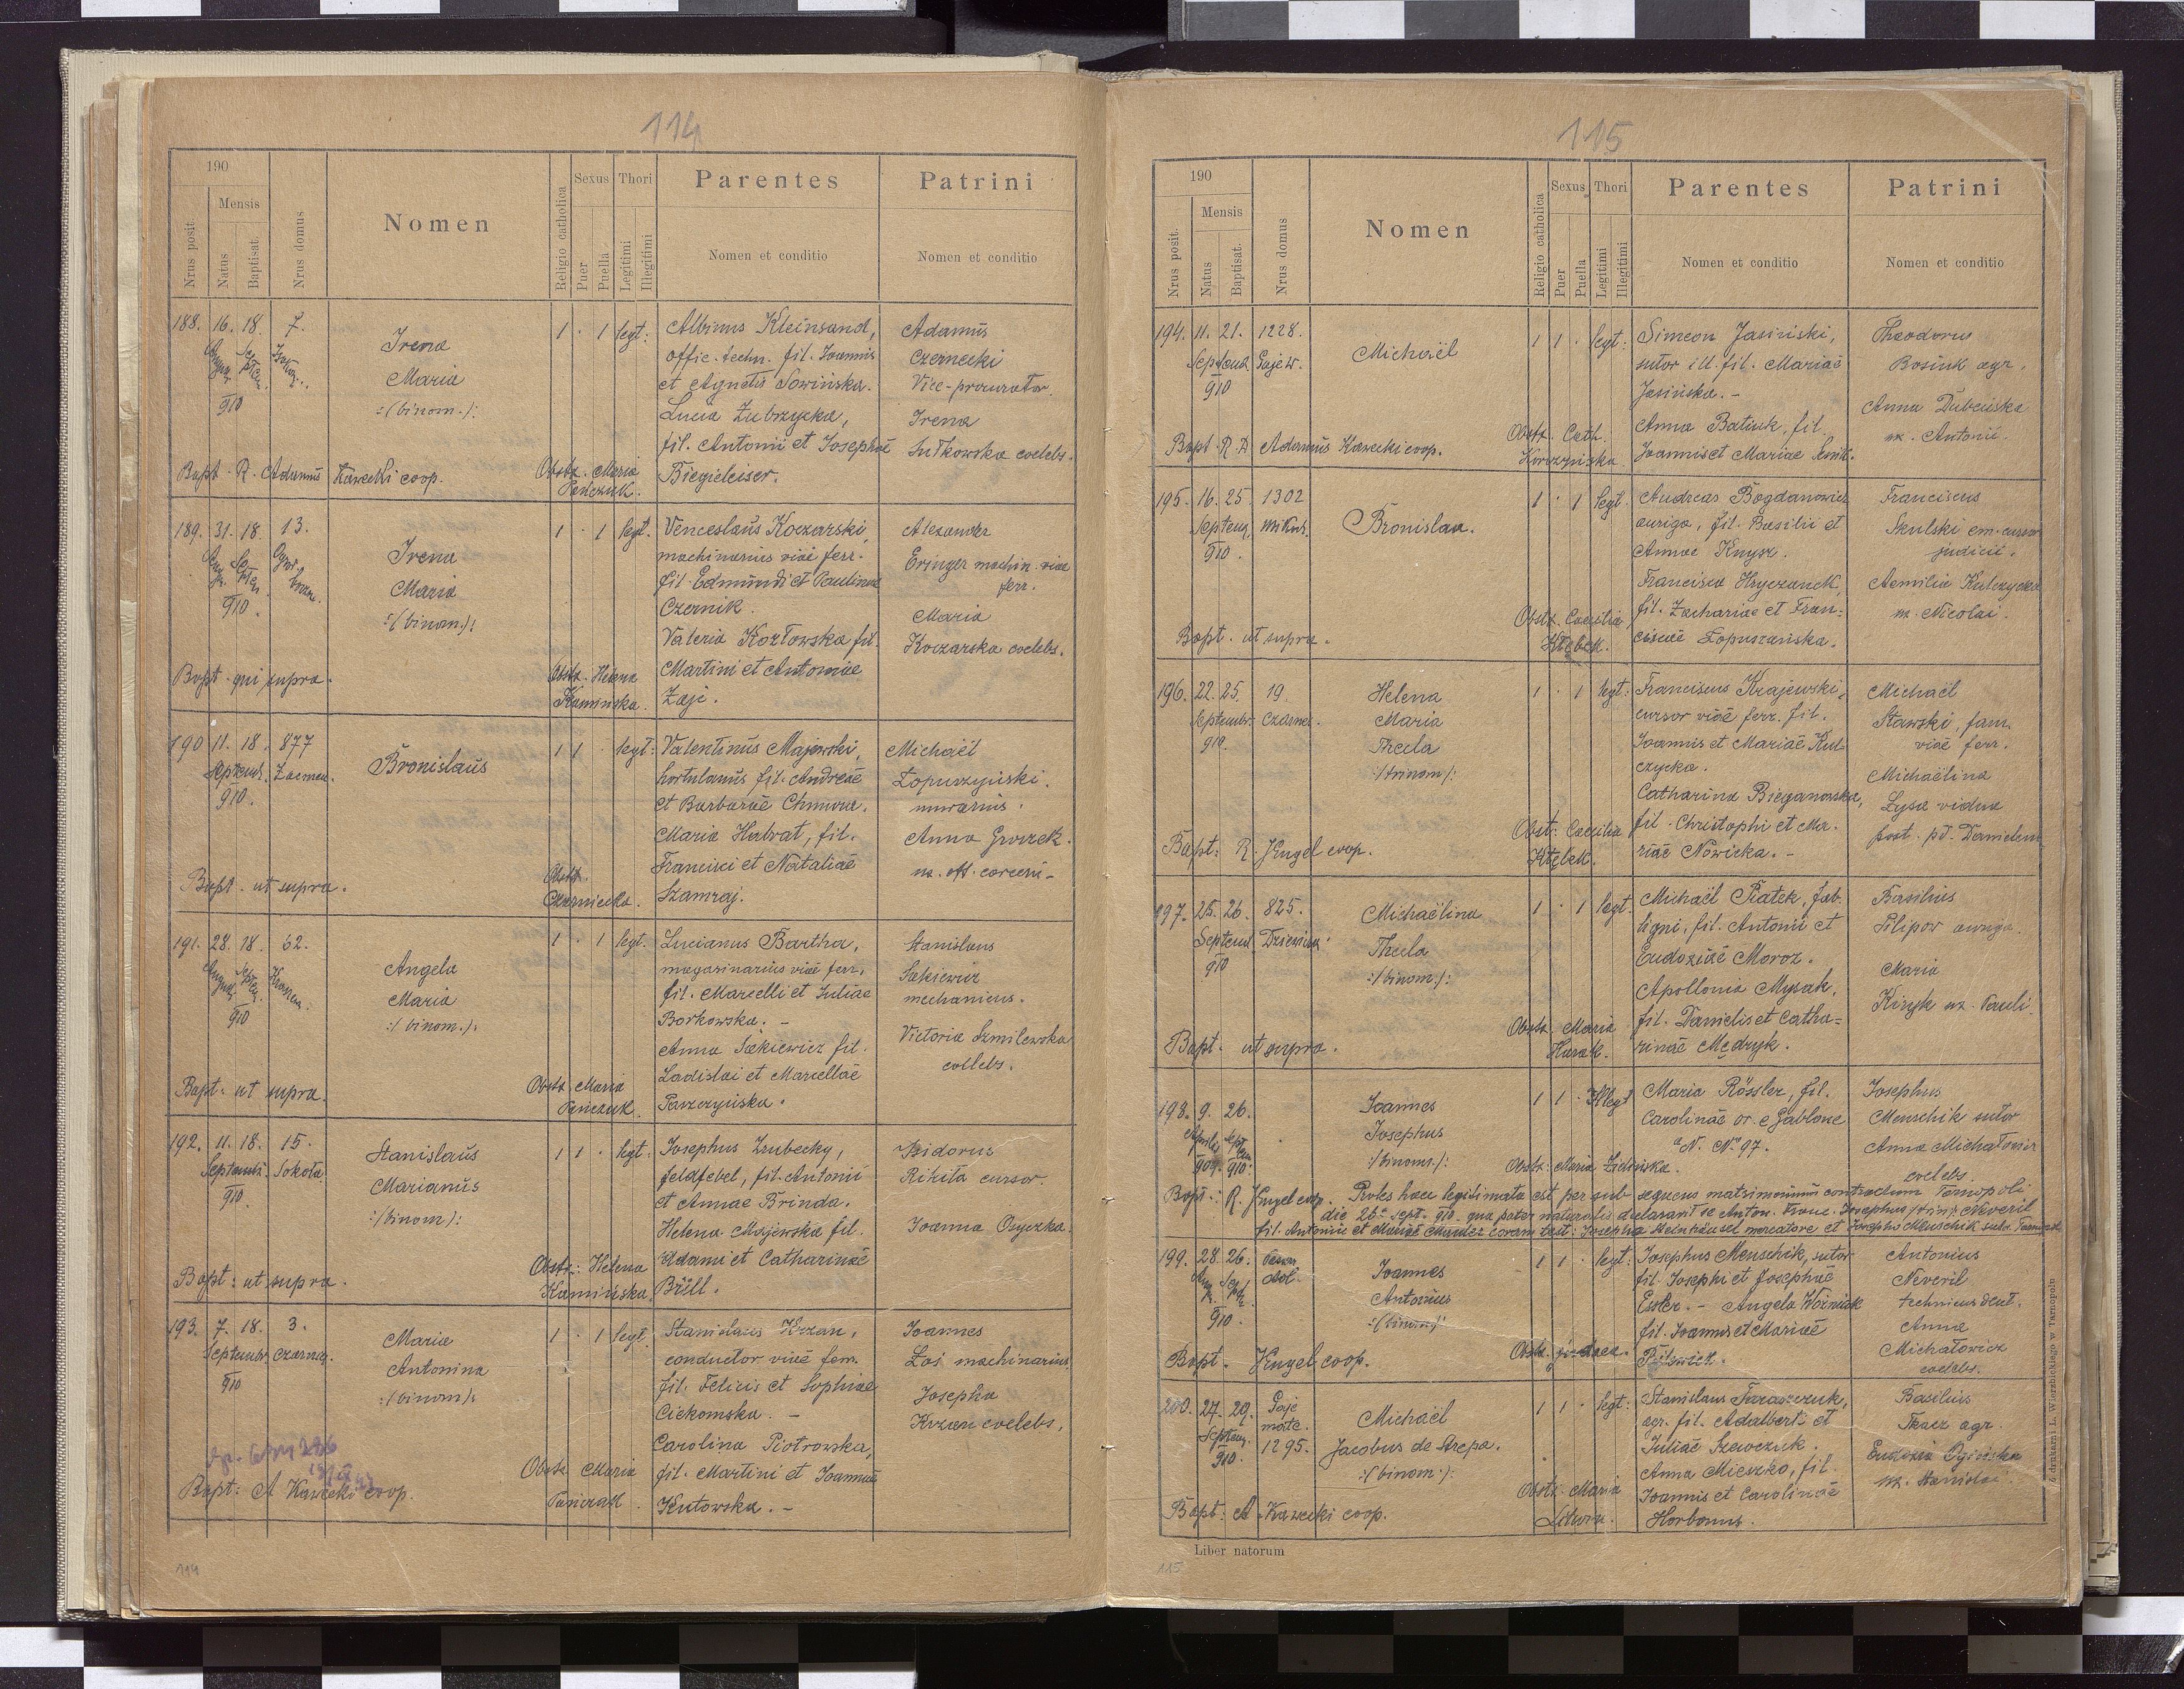 114
190
Nrus posit.
Mensis
Natus
Baptisat.
Nrus domus
Nomen
Religio catholica
Sexus
Puer
Puella
Thori
Legitimi
Illegitimi
Parentes
Nomen et conditio
Patrini
Nomen et conditio
188. 16. 18. 7.
910
Irena
Maria
:/binom./:
1 · 1 legt:
Albinus Kleinsand,
offic. techn. fil. Joannis
et Agnetis Sowińska.
Lucia Zubrzycka,
fil. Antonii et Josephae
Biegieleiser.
Adamus
Czernecki
Vice-procurator
Irena
Sutkowska coelebs.
Bapt. R. Adamus Kawecki coop.
Obstx. Maria
189. 31. 18. 13.
910.
Irena
Maria
:/binom./:
1 · 1 legt.
Venceslaus Koczarski,
machinarius viae ferr.
fil. Edmundi et Paulinae
Czernik.
Valeria Kozłowska fil.
Martini et Antoniae
Zaje.
Alexander
Eringer machin. viae
ferr.
Maria
Koczarska coelebs.
Bapt. qui supra.
Obstx. Helena
Kamińska.
190 11. 18. 877
Septemb.
910.
Bronislaus
1 1 · legt:
Valentinus Majewski,
hortulanus fil. Andreae
et Barbarae Chmura.
Maria Habrat, fil.
Francisci et Nataliae
Szamraj.
Michaël
Łopuszyński.
murarius.
Anna Grozek.
Bapt. ut supra.
Obstx.
Czarniecka.
191. 28. 18. 62.
910
Angela
Maria
:/binom./:
1 · 1 legt.
Lucianus Bartha,
magasinarius viae ferr.
fil. Marcelli et Juliae
Borkowska. -
Anna Sękiewicz fil.
Ladislai et Marcellae
Parczyńska.
Stanislaus
Sękiewicz
mechanicus.
Victoria Szmilewska
coelebs.
Bapt: ut supra.
Obstx. Maria
192. 11. 18. 15.
Septemb. Sokoła
910.
Stanislaus
Marianus
:/binom./:
1 1 · legt:
Josephus Zrubecky,
feldfebel, fil. Antonii
et Annae Brinda.
Helena Majewska fil.
Adami et Catharinae
Büll.
Isidorus
Rikita cursor.
Joanna Osyczka.
Bapt: ut supra.
Obstx: Helena
Kamińska.
193. 7. 18. 3.
Septembr. Czarnec.
910
Maria
Antonina
:/binom./:
1 · 1 legt.
Stanislaus Krzan,
conductor viae ferr.
fil. Felicis et Sophiae
Ciekomska. -
Carolina Piotrowska,
fil. Martini et Joannae
Kutowska. -
Joannes
Łoś machinarius.
Josepha
Krzan coelebs.
Bapt: A Kawecki coop.
Obstx Maria
114
115
190
Nrus posit.
Mensis
Natus
Baptisat.
Nrus domus
Nomen
Religio catholica
Sexus
Puer
Puella
Thori
Legitimi
Illegitimi
Parentes
Nomen et conditio
Patrini
Nomen et conditio
194. 11. 21. 1228.
Gajew.
910
Michaël
1 1 · legt:
Simeon Jasiński,
sutor ill. fil. Mariae
Jasińska. -
Anna Batiuk, fil.
Joannis et Mariae
Theodorus
Bosiuk agr.
Anna Dubeńska
ux. Antonii.
Bapt. R. D. Adamus Kawecki coop.
Obstx. Cath.
Korczyńska
195. 16. 25. 1302
Septem. Mikul.
910.
Bronislaa.
1 · 1 legt.
Andreas Bogdanowicz
auriga, fil. Basilii et
Annae Knysz.
Francisca Hryczanek,
fil. Zachariae et Fran=
ciscae Łopuszańska.
Franciscus
Skulski em. cursor
judicii.
Aemilia Kulczycka
ux. Nicolai.
Bapt. ut supra.
Obstx. Caecilia
Kłębek.
196. 22. 25. 19.
Septembr. Czarnec.
910.
Helena
Maria
Thecla
:/trinom/:
1 · 1 legt:
Franciscus Krajewski,
cursor viae ferr. fil.
Joannis et Mariae Kul
czycka.
Catharina Bieganowska,
fil. Christophi et Ma-
riae Nowicka. -
Michaël
Stawski fam.
viae ferr.
Michaëlina
Łysa vidua
post. pd. Danielem
Bapt: R. J Engel coop.
Obst: Caecilia
Kłębek.
197. 25. 26. 825.
Septem.
910
Michaëlina
Thecla
:/binom/:
1 · 1 legt.
Michaël Piatek, fab.
ligni, fil. Antonii et
Eudoxiae Moroz.
Apollonia Mysak,
fil. Danielis et Catha=
rinae Mędryk.
Basilius
Filipov auriga.
Maria
Kiryk ux. Pauli.
Bapt. ut supra.
Obstx. Maria
Hurak.
198. 9. 26.
Aprilis Septem
909. 910.
Joannes
Josephus
:/binom/:
1 1 · Illegt
Maria Rössler, fil.
Carolinae or. e Gablone
a/N. No 97.
Josephus
Menschik sutor
Anna Michałowicz
coelebs.
Obstx: Maria Zielińska.
Bapt: R. J Engel coop. Proles haec legitimata est per sub sequens matrimonium contractum Tarnopoli
die 26e Sept. 910. qua pater naturalis declaravit se Anton. Franc. Josephus /trin/ Neveril
fil. Antonii et Mariae Munder coram test: Josepho Steinhäusel mercatore et Josepho Menschik sutor. Tarnopoli
199. 28. 26.
910.
Joannes
Antonius
:/binom/:
1 1 · legt:
Josephus Menschik, sutor
fil. Josephi et Josephae
Essler. - Angela Woźniak
fil. Joannis et Mariae
Antonius
Neveril
technicus dent.
Anna
Michałowicz
coelebs.
Bapt. J Engel coop.
Obstx. judaea.
200. 27. 29. Gaje
Septem. 1295.
910.
Michaël
Jacobus de Strepa.
:/binom/:
1 1 · legt:
Stanislaus Taraszczuk,
agr. fil. Adalberti et
Juliae Szewczuk.
Anna Mieszko, fil.
Joannis et Carolinae
Horbanus.
Basilius
Tkacz agr.
Bapt: A. Kawecki coop.
Obstx. Maria
Liber natorum
Z drukarni L. Wierzbickiego w Tarnopolu
115